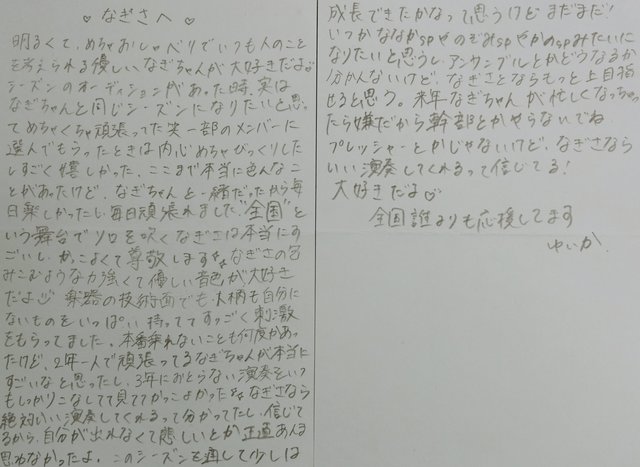 ♡ なぎさへ ♡
明るくて、めちゃおしゃべりでいつも人のこと
を考えられる優しいなぎちゃんが大好きだよ
シーズンのオーディションがあった時、実は
なぎちゃんと同じシーズンになりたいと思っ
てめちゃくちゃ頑張ってた笑 一部のメンバーに
選んでもらったときは内心めちゃびっくりした
しすごく嬉しかった。ここまで本当に色んなこ
とがあったけど、なぎちゃんと一緒だったから毎
日楽しかったし毎日頑張れました "全国" と
いう舞台でソロを吹くなぎさは本当にす
ごいし、かっこよくて尊敬します なぎさの包
みこむような力強くて優しい音色が大好き
だよ 楽器の技術面でも人柄も自分に
ないものをいっぱい持っててすっごく刺激
をもらってました。本番乗れないことも何度かあっ
たけど、2年一人で頑張ってるなぎちゃんが本当に
すごいなと思ったし、3年におとらない演奏をいつ
もしっかりこなしてて見ててかっこよかった なぎさなら
絶対いい演奏してくれるって分かってたし、信じて
るから、自分が出れなくて悲しいとか正直あんま
思わなかったよ、このシーズンを通して少しは
成長できたかなって思うけどまだまだ!
いつかななかspやのぞみspやかのspみたいに
なりたいと思うし、アンサンブルとかどうなるか
分かんないけど、なぎさとならもっと上目指
せると思う。来年なぎちゃんが忙しくなっちゃっ
たら嫌だから幹部とかやらないでね
プレッシャーとかじゃないけど、なぎさなら
いい演奏してくれるって信じてる!
大好きだよ♡
全国誰よりも応援してます
ゆいか